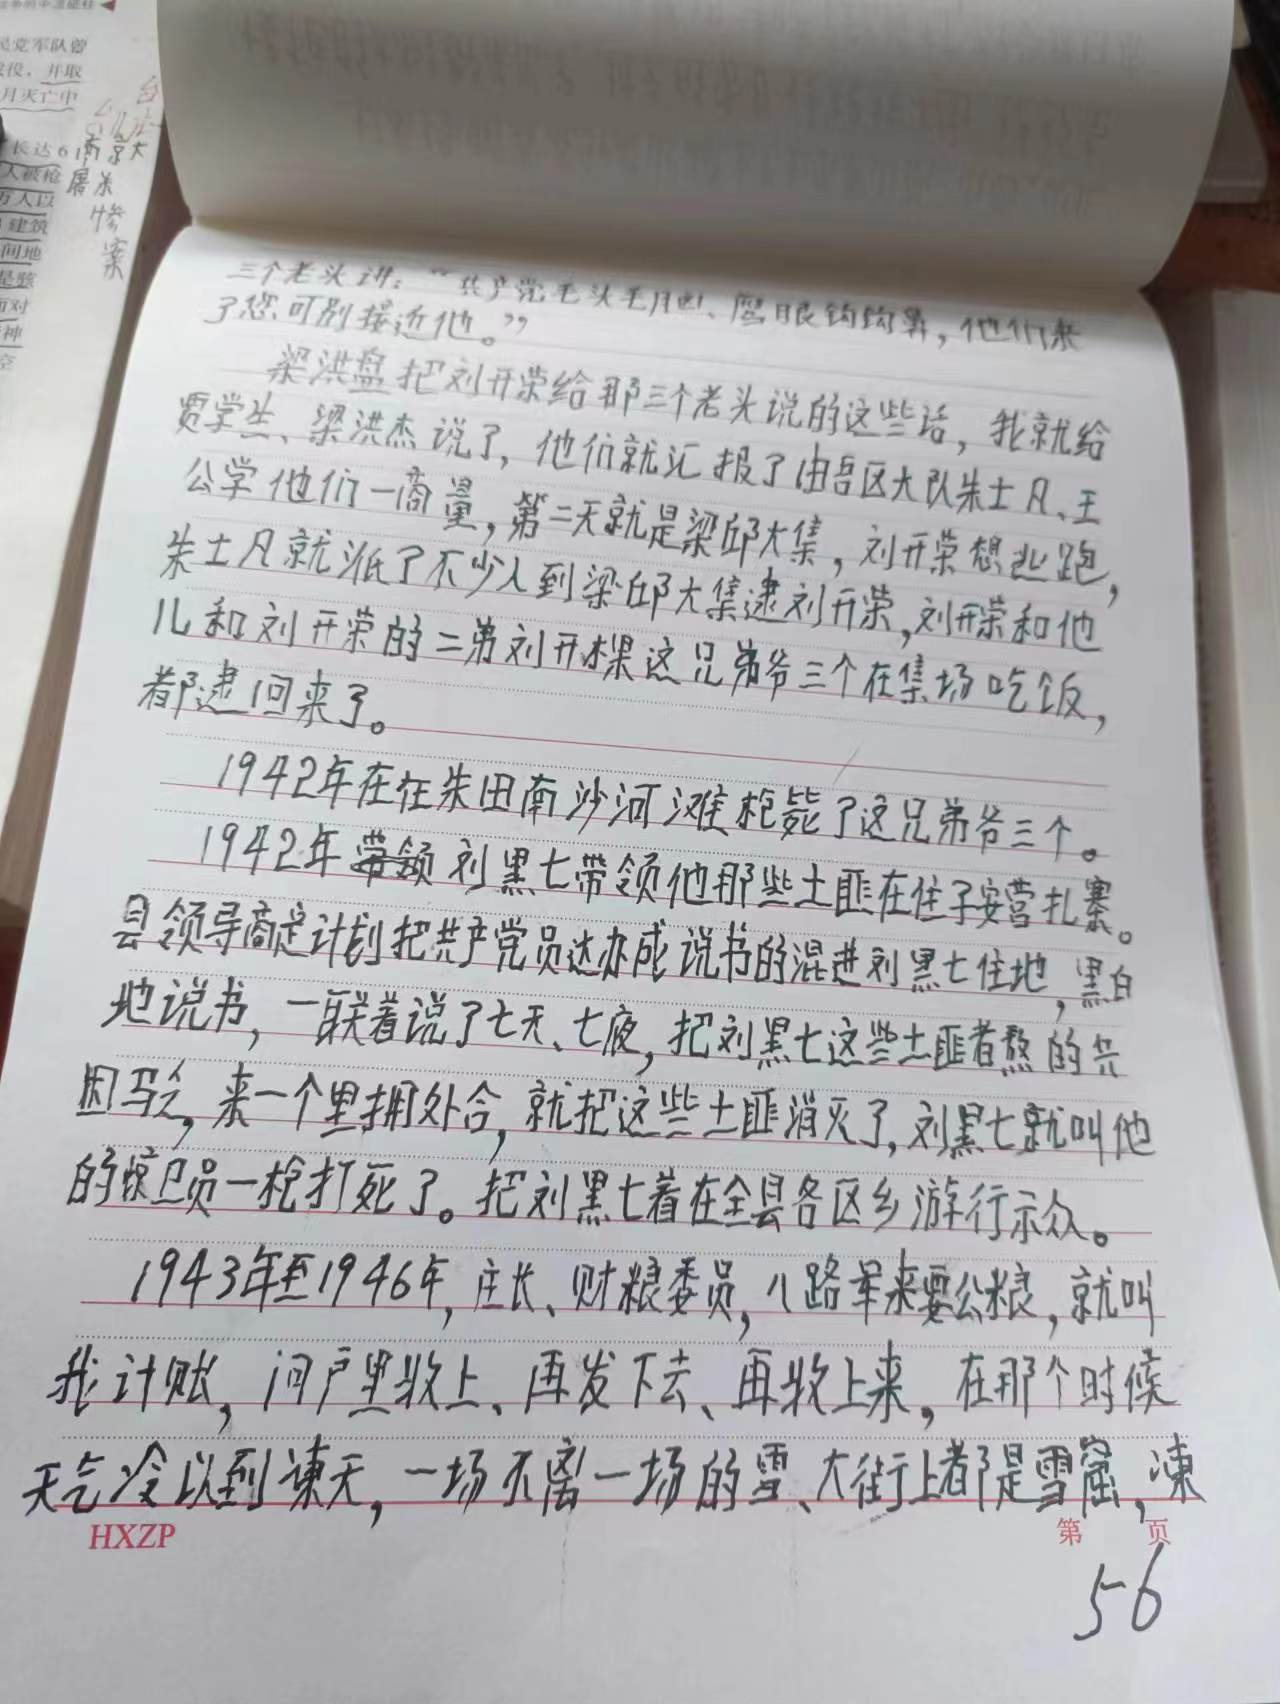 民党军队曾
役，并取
月灭亡中
台
儿庄
长达6
南京大
人被枪
屠杀
万人以
惨
建筑
案
间地
是骇
面对
神
空
三个老头讲：“共产党毛头毛月、鹰眼钩钩鼻，他们来
了您可别接近他。”
梁洪盘把刘开荣给那三个老头说的这些话，我就给
贾学生、梁洪杰说了，他们就汇报了由吾区大队朱士凡、王
公学他们一商量，第二天就是梁邱大集，刘开荣想逃跑，
朱士凡就派了不少人到梁邱大集逮刘开荣，刘开荣和他
儿和刘开荣的二弟刘开棵这兄弟爷三个在集场吃饭，
都逮回来了。
1942年在在朱田南沙河滩枪毙了这兄弟爷三个。
1942年带领刘黑七带领他那些土匪在住子安营扎寨。
县领导商定计划把共产党员达办成说书的混进刘黑七住地，黑白
地说书，一联着说了七天、七夜，把刘黑七这些土匪者熬的兵
困马乏，来一个里拥外合，就把这些土匪消灭了，刘黑七就叫他
的惊卫员一枪打死了。把刘黑七着在全县各区乡游行示众。
1943年至1946年，庄长、财粮委员，八路军来要公粮，就叫
我计账，问户里收上、再发下去、再收上来，在那个时候
天气冷以到谏天，一场不离一场的雪、大街上都是雪窟，冻
HXZP
第 页
56